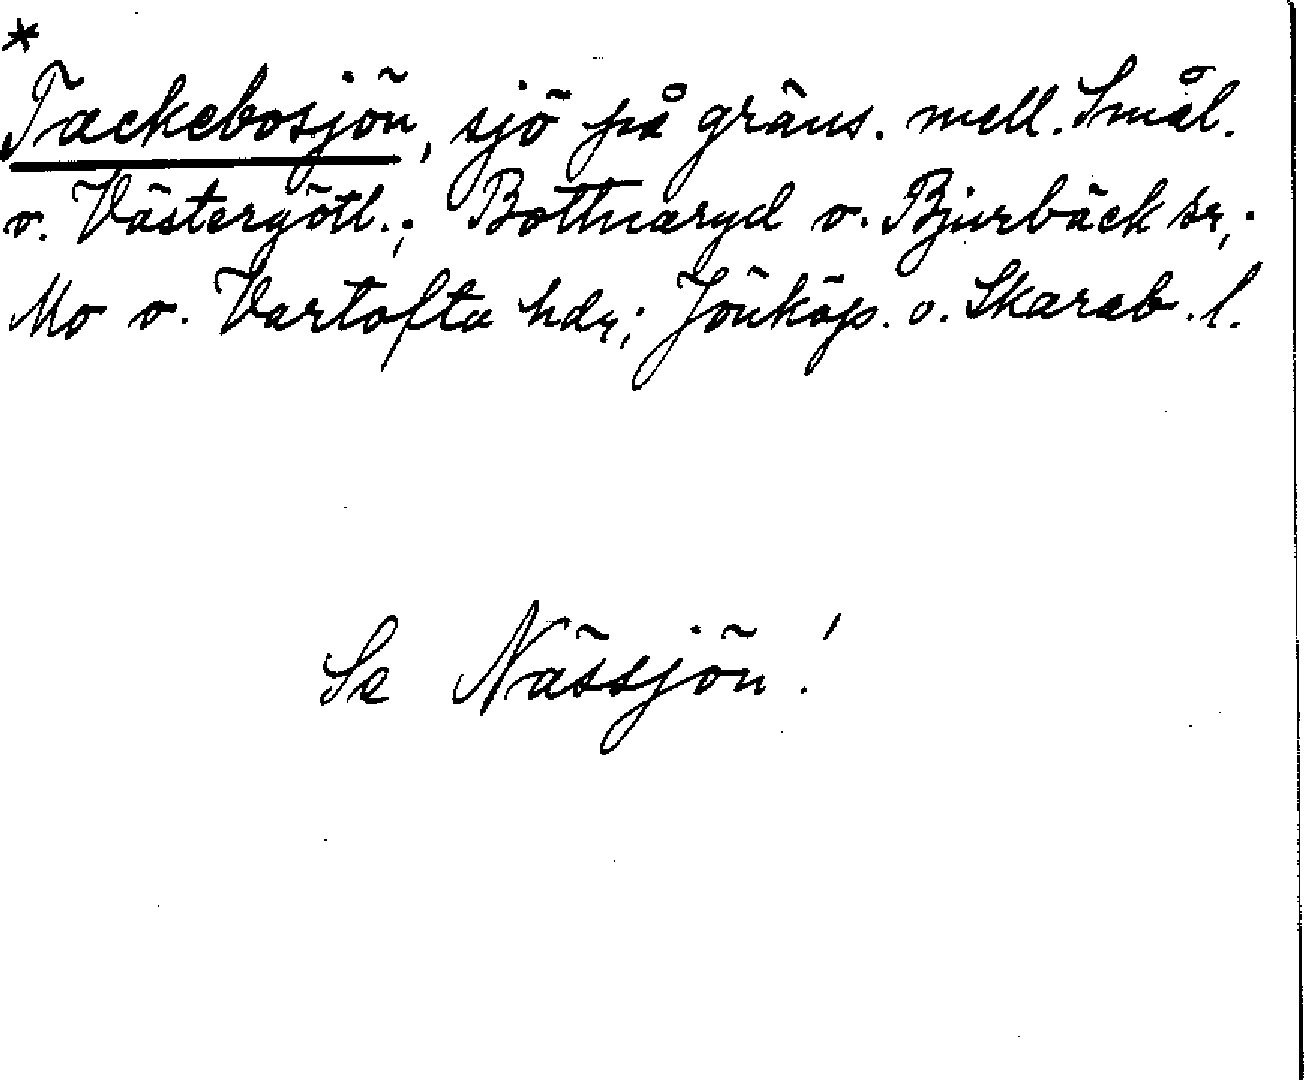 *
Tackebosjön, sjö på gräns. mell. Smål.
o. Västergötl.; Bottnaryd o. Bjurbäck sr,;
Mo o. Vartofta hdr,; Jönköp. o. Skarab. l.
Se Nässjön!